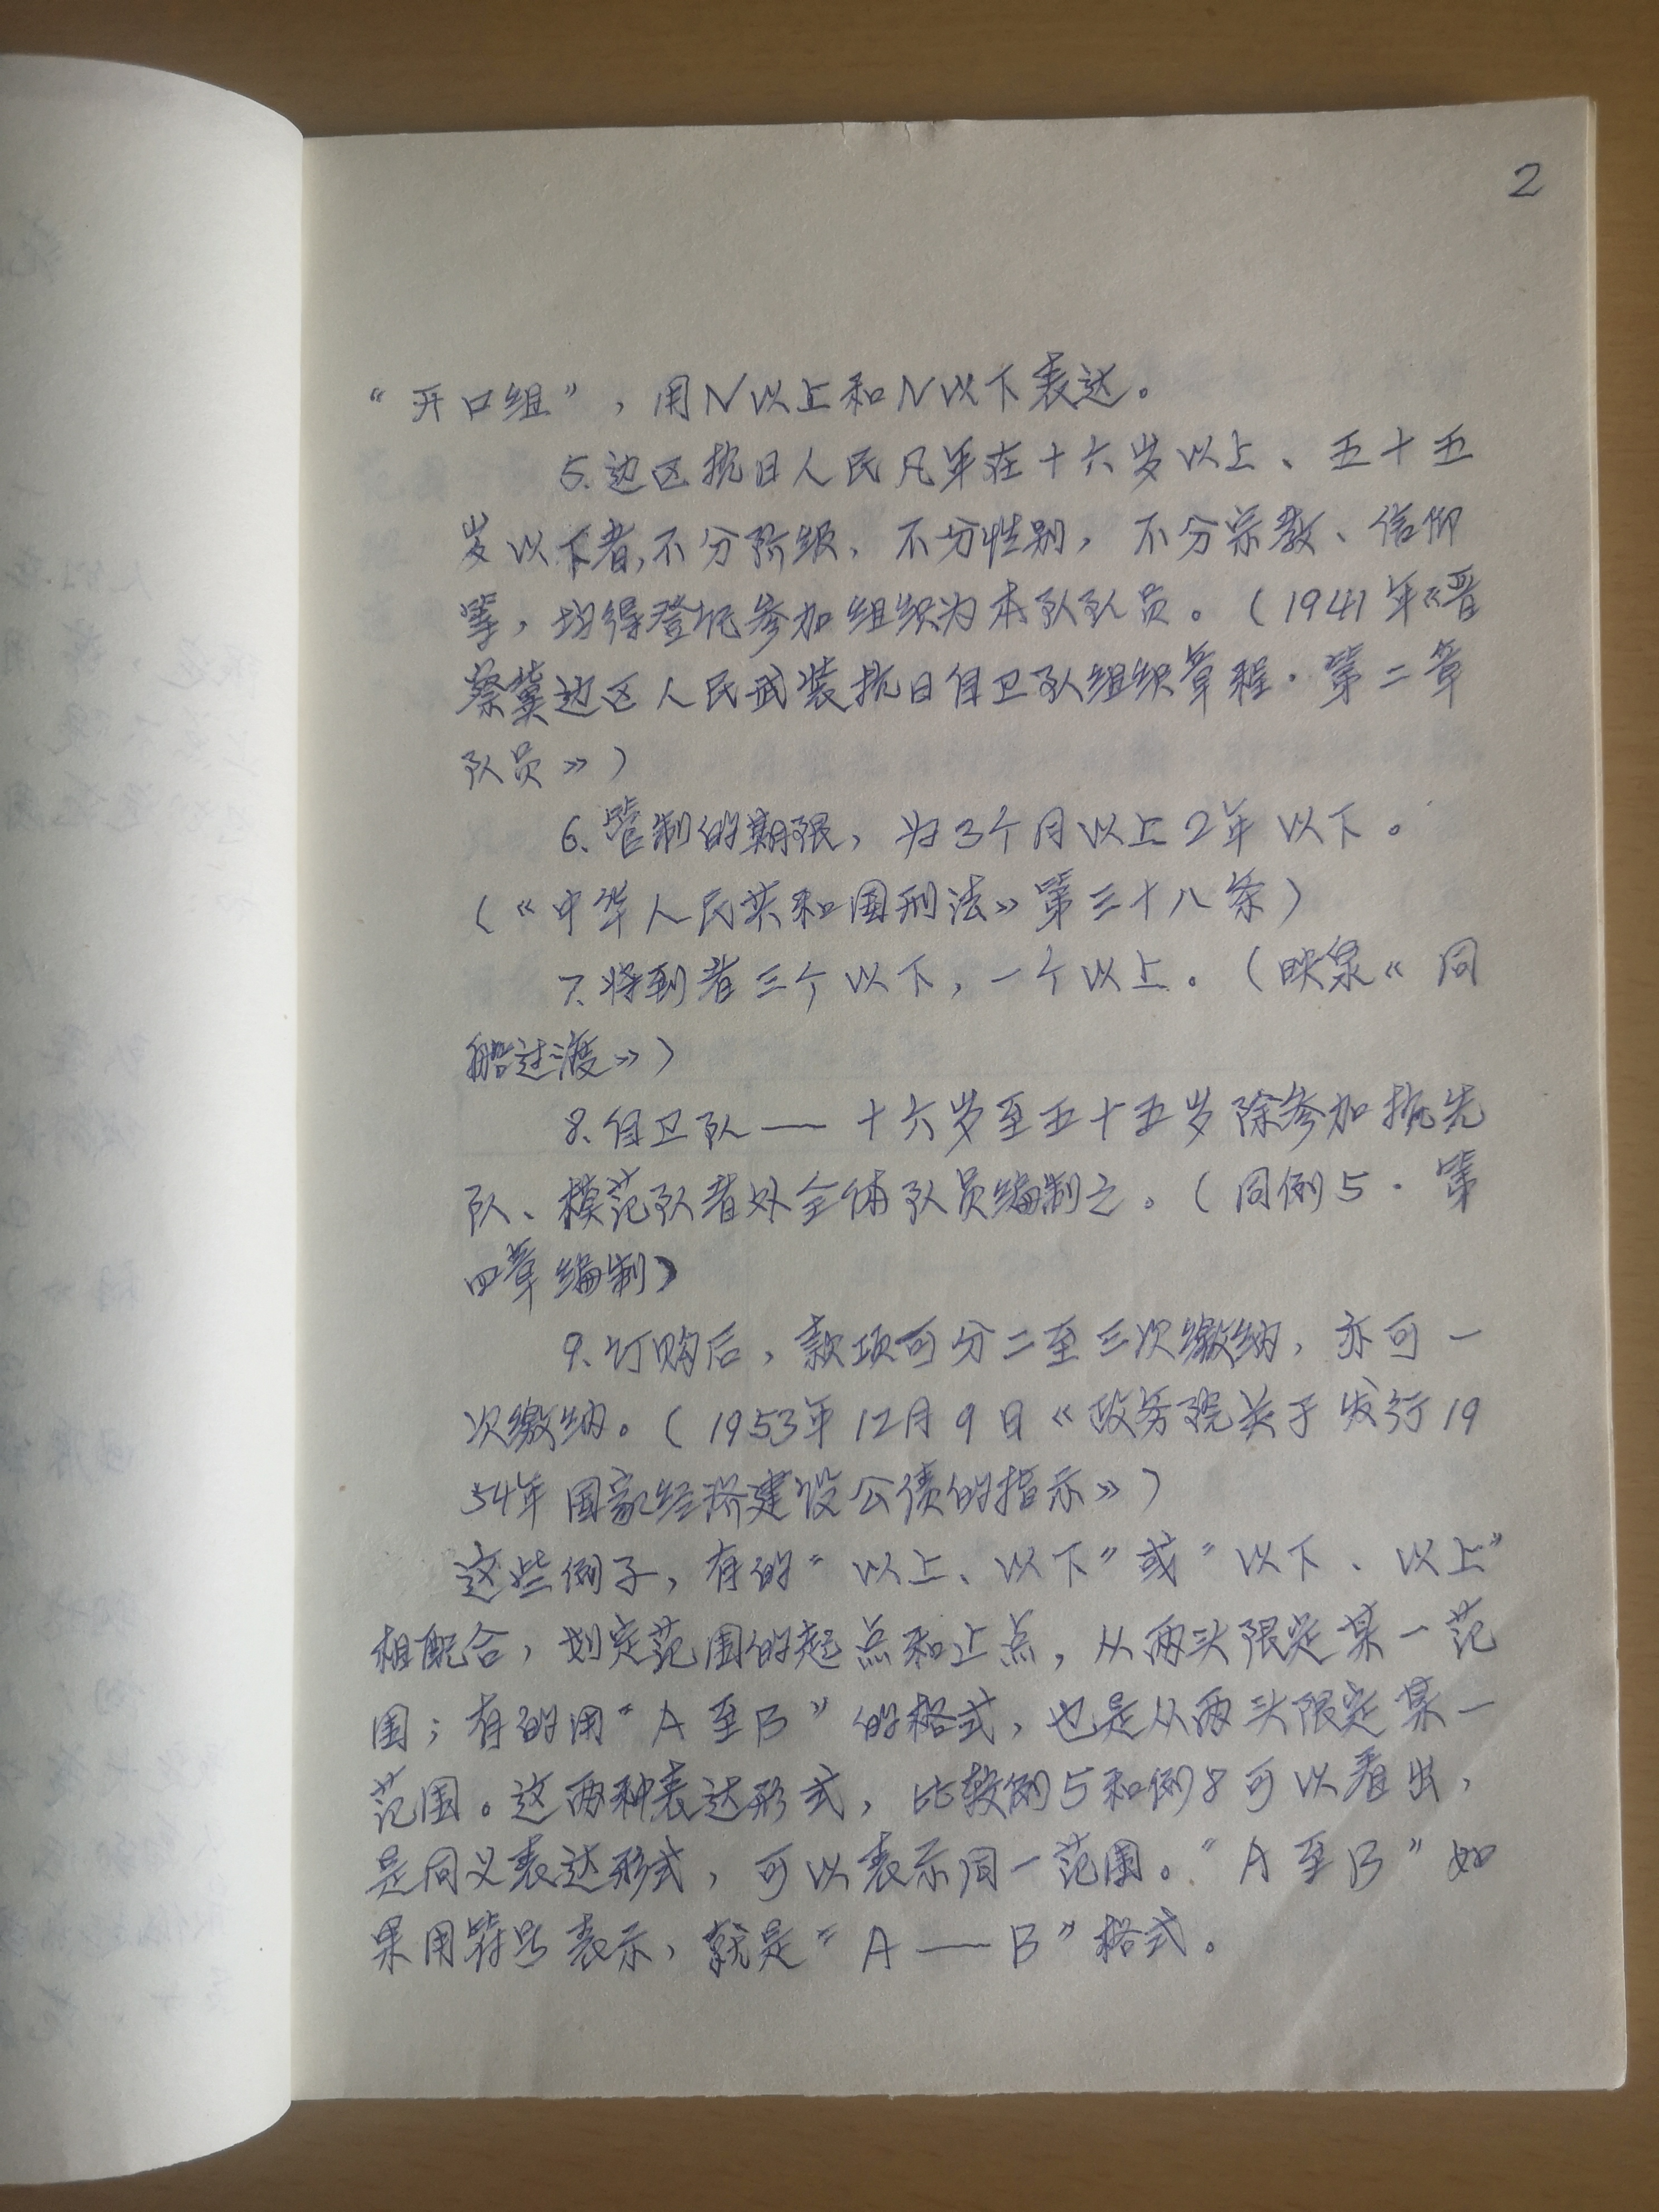 2
“开口组”，用N以上和N以下表达。
5.边区抗日人民凡年在十六岁以上、五十五
岁以下者，不分阶级，不分性别，不分宗教、信仰
等，均得登记参加组织为本队队员。（1941年《晋
察冀边区人民武装抗日自卫队组织章程·第二章
队员》）
6.管制的期限，为3个月以上2年以下。
（《中华人民共和国刑法》第三十八条）
7.将到者三个以下，一个以上。（映泉《同
船过渡》）
8.自卫队——十六岁至五十五岁除参加抗先
队、模范队者外全体队员编制之。（同例5·第
四章编制）
9.订购后，款项可分二至三次缴纳，亦可一
次缴纳。（1953年12月9日《政务院关于发行19
54年国家经济建设公债的指示》）
这些例子，有的“以上、以下”或“以下、以上”
相配合，划定范围的起点和止点，从两头限定某一范
围；有的用“A至B”的格式，也是从两头限定某一
范围。这两种表达形式，比较例5和例8可以看出，
是同义表达形式，可以表示同一范围。“A至B”如
果用符号表示，就是“A——B”格式。